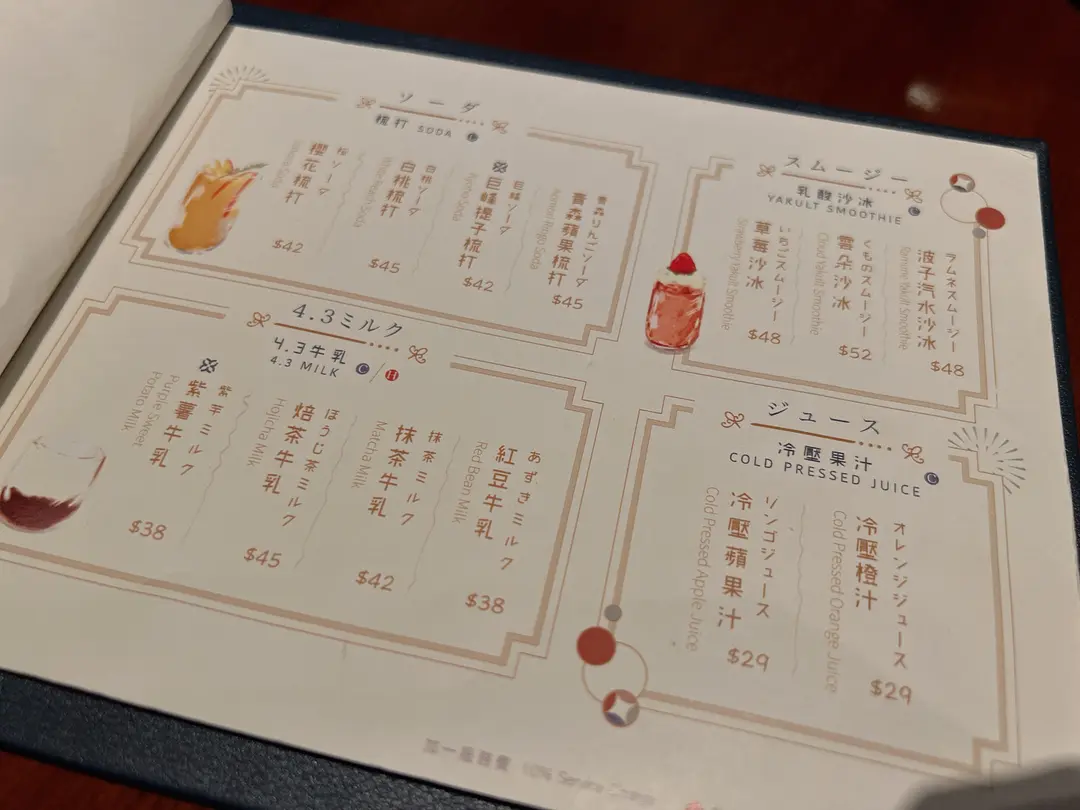 ソーダ
梳打 SODA C
青森りんごソーダ
青森蘋果梳打
Aomori Ringo Soda
$45
巨峰ソーダ
巨峰提子梳打
Kyoho Soda
$42
白桃ソーダ
白桃梳打
White Peach Soda
$45
桜ソーダ
櫻花梳打
Sakura Soda
$42
スムージー
乳酸沙冰
YAKULT SMOOTHIE C
ラムネスムージー
波子汽水沙冰
Ramune Yakult Smoothie
$48
くものスムージー
雲朵沙冰
Cloud Yakult Smoothie
$52
いちごスムージー
草莓沙冰
Strawberry Yakult Smoothie
$48
4.3ミルク
4.3牛乳
4.3 MILK C / H
あずきミルク
紅豆牛乳
Red Bean Milk
$38
抹茶ミルク
抹茶牛乳
Matcha Milk
$42
ほうじ茶ミルク
焙茶牛乳
Hojicha Milk
$45
紫芋ミルク
紫薯牛乳
Purple Sweet
Potato Milk
$38
ジュース
冷壓果汁
COLD PRESSED JUICE C
オレンジジュース
冷壓橙汁
Cold Pressed Orange Juice
$29
リンゴジュース
冷壓蘋果汁
Cold Pressed Apple Juice
$29
加一服務費 10% Service Charge